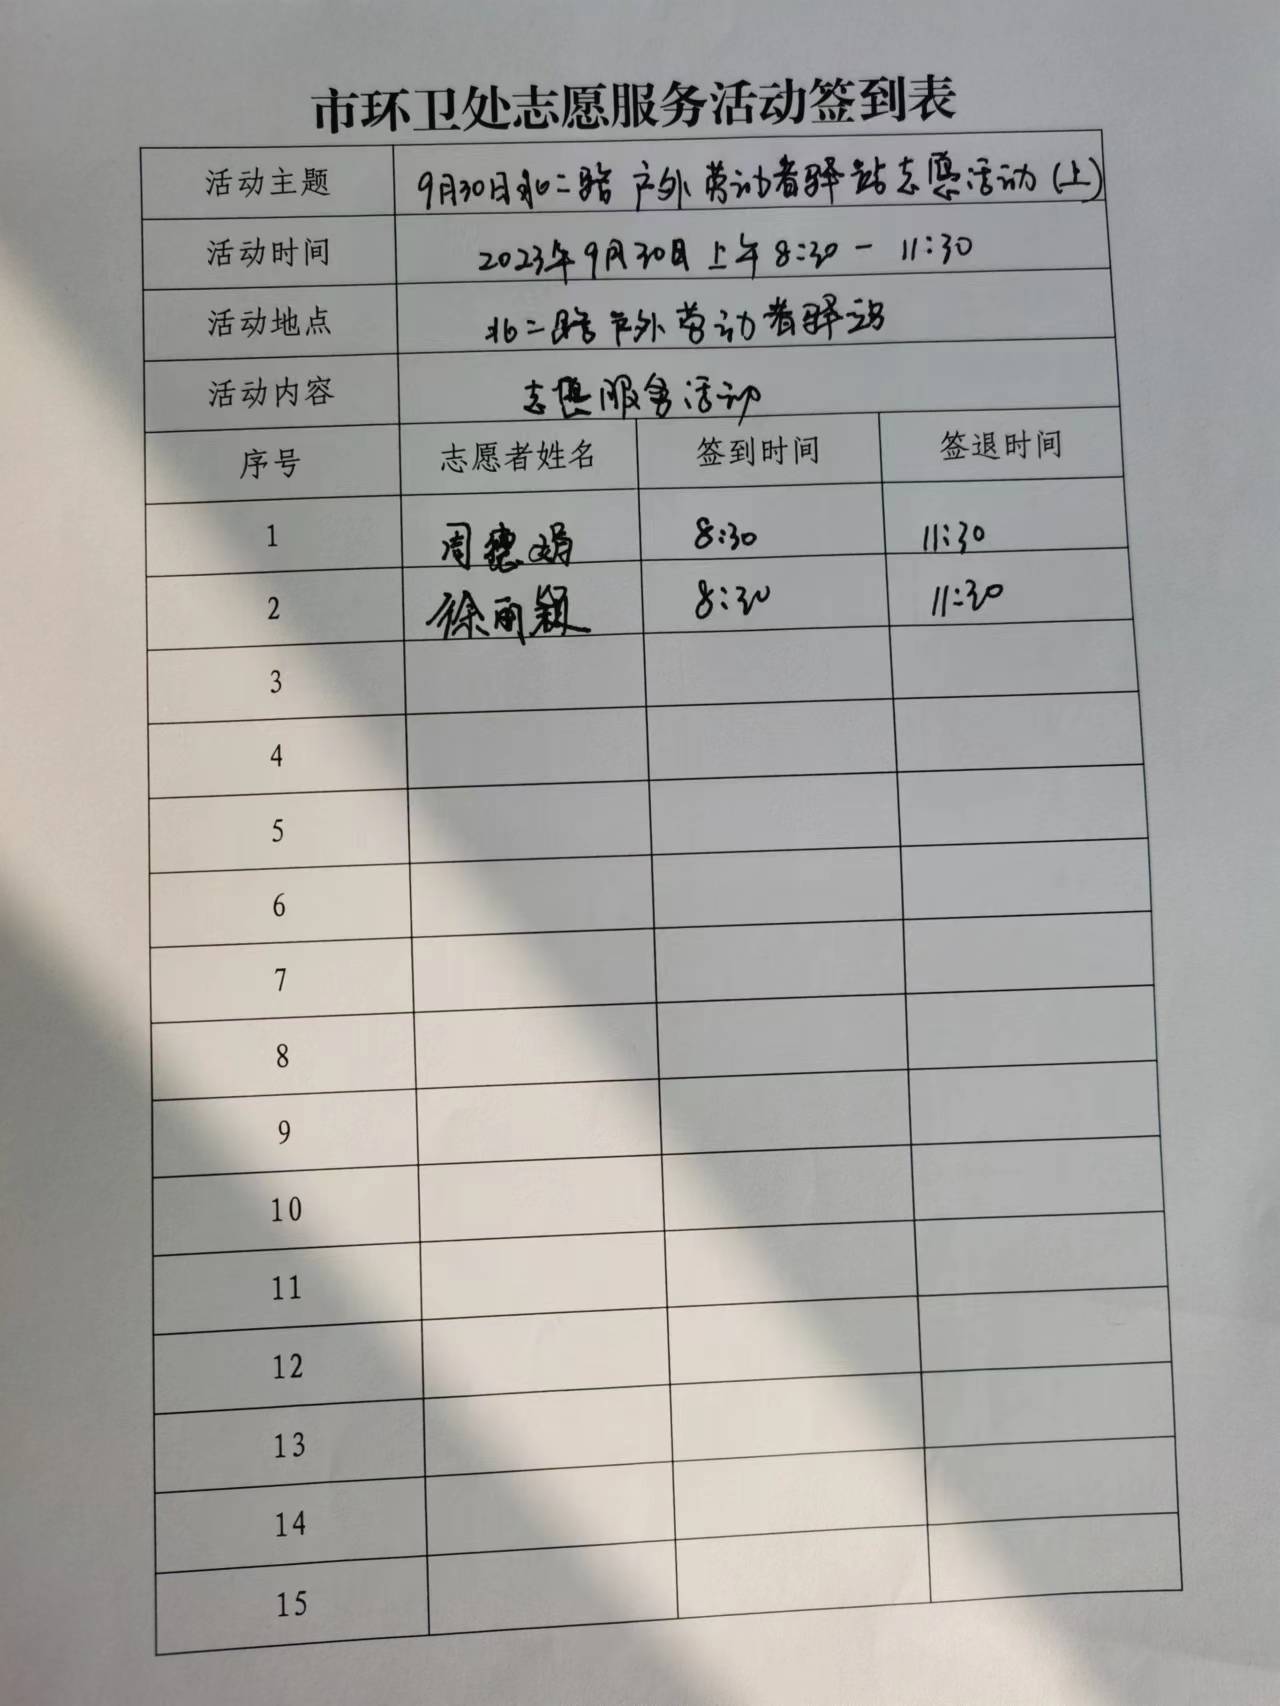 市环卫处志愿服务活动签到表
活动主题 9月30日北二路户外劳动者驿站志愿活动(上)
活动时间 2023年9月30日上午8:30-11:30
活动地点 北二路户外劳动者驿站
活动内容 志愿服务活动
序号 志愿者姓名 签到时间 签退时间
1 周德娟 8:30 11:30
2 徐丽颖 8:30 11:30
3
4
5
6
7
8
9
10
11
12
13
14
15